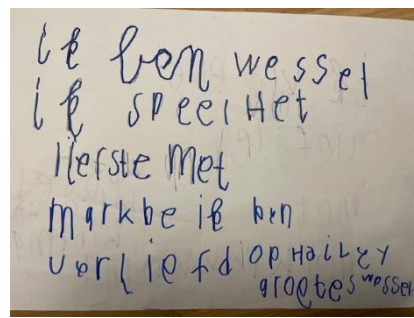 ik ben wessel
ik speel Het
liefste met
markbe ik ben
verliefd op Hailey
groetes wessel